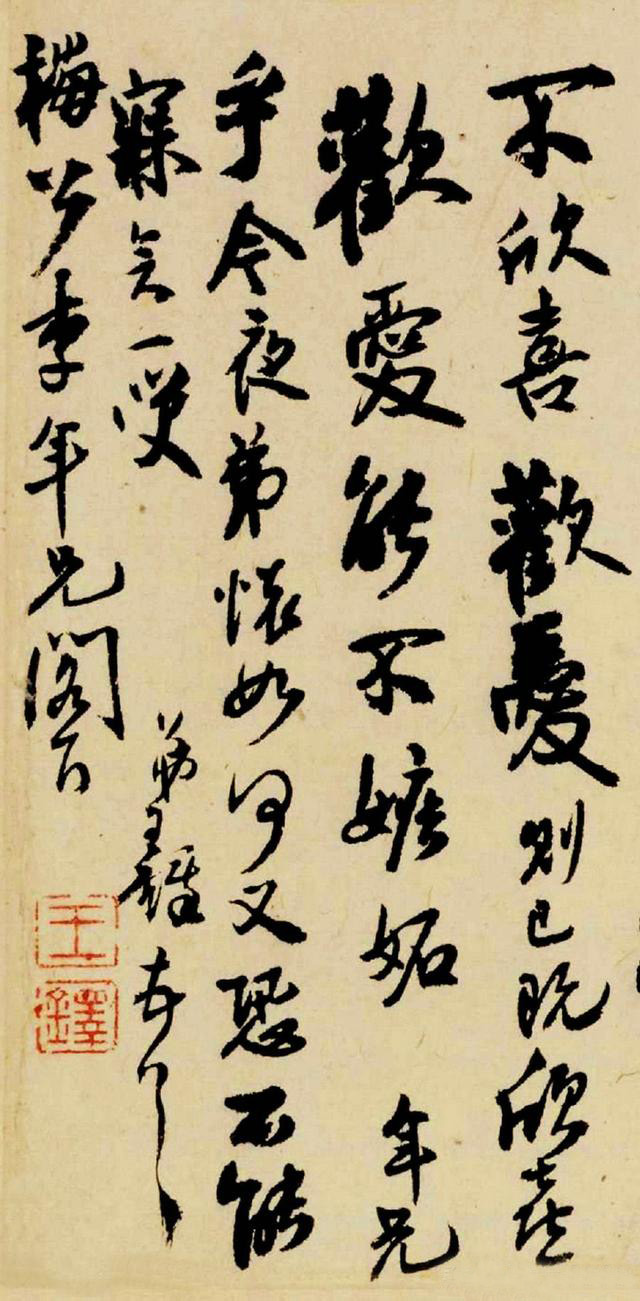 不欣喜歡憂則已既欣喜
歡愛能不嫉妬年兄
乎今夜弟懷如何又恐不能
寐矣一噯
弟王鐸左
梅公李年兄閣下
王鐸